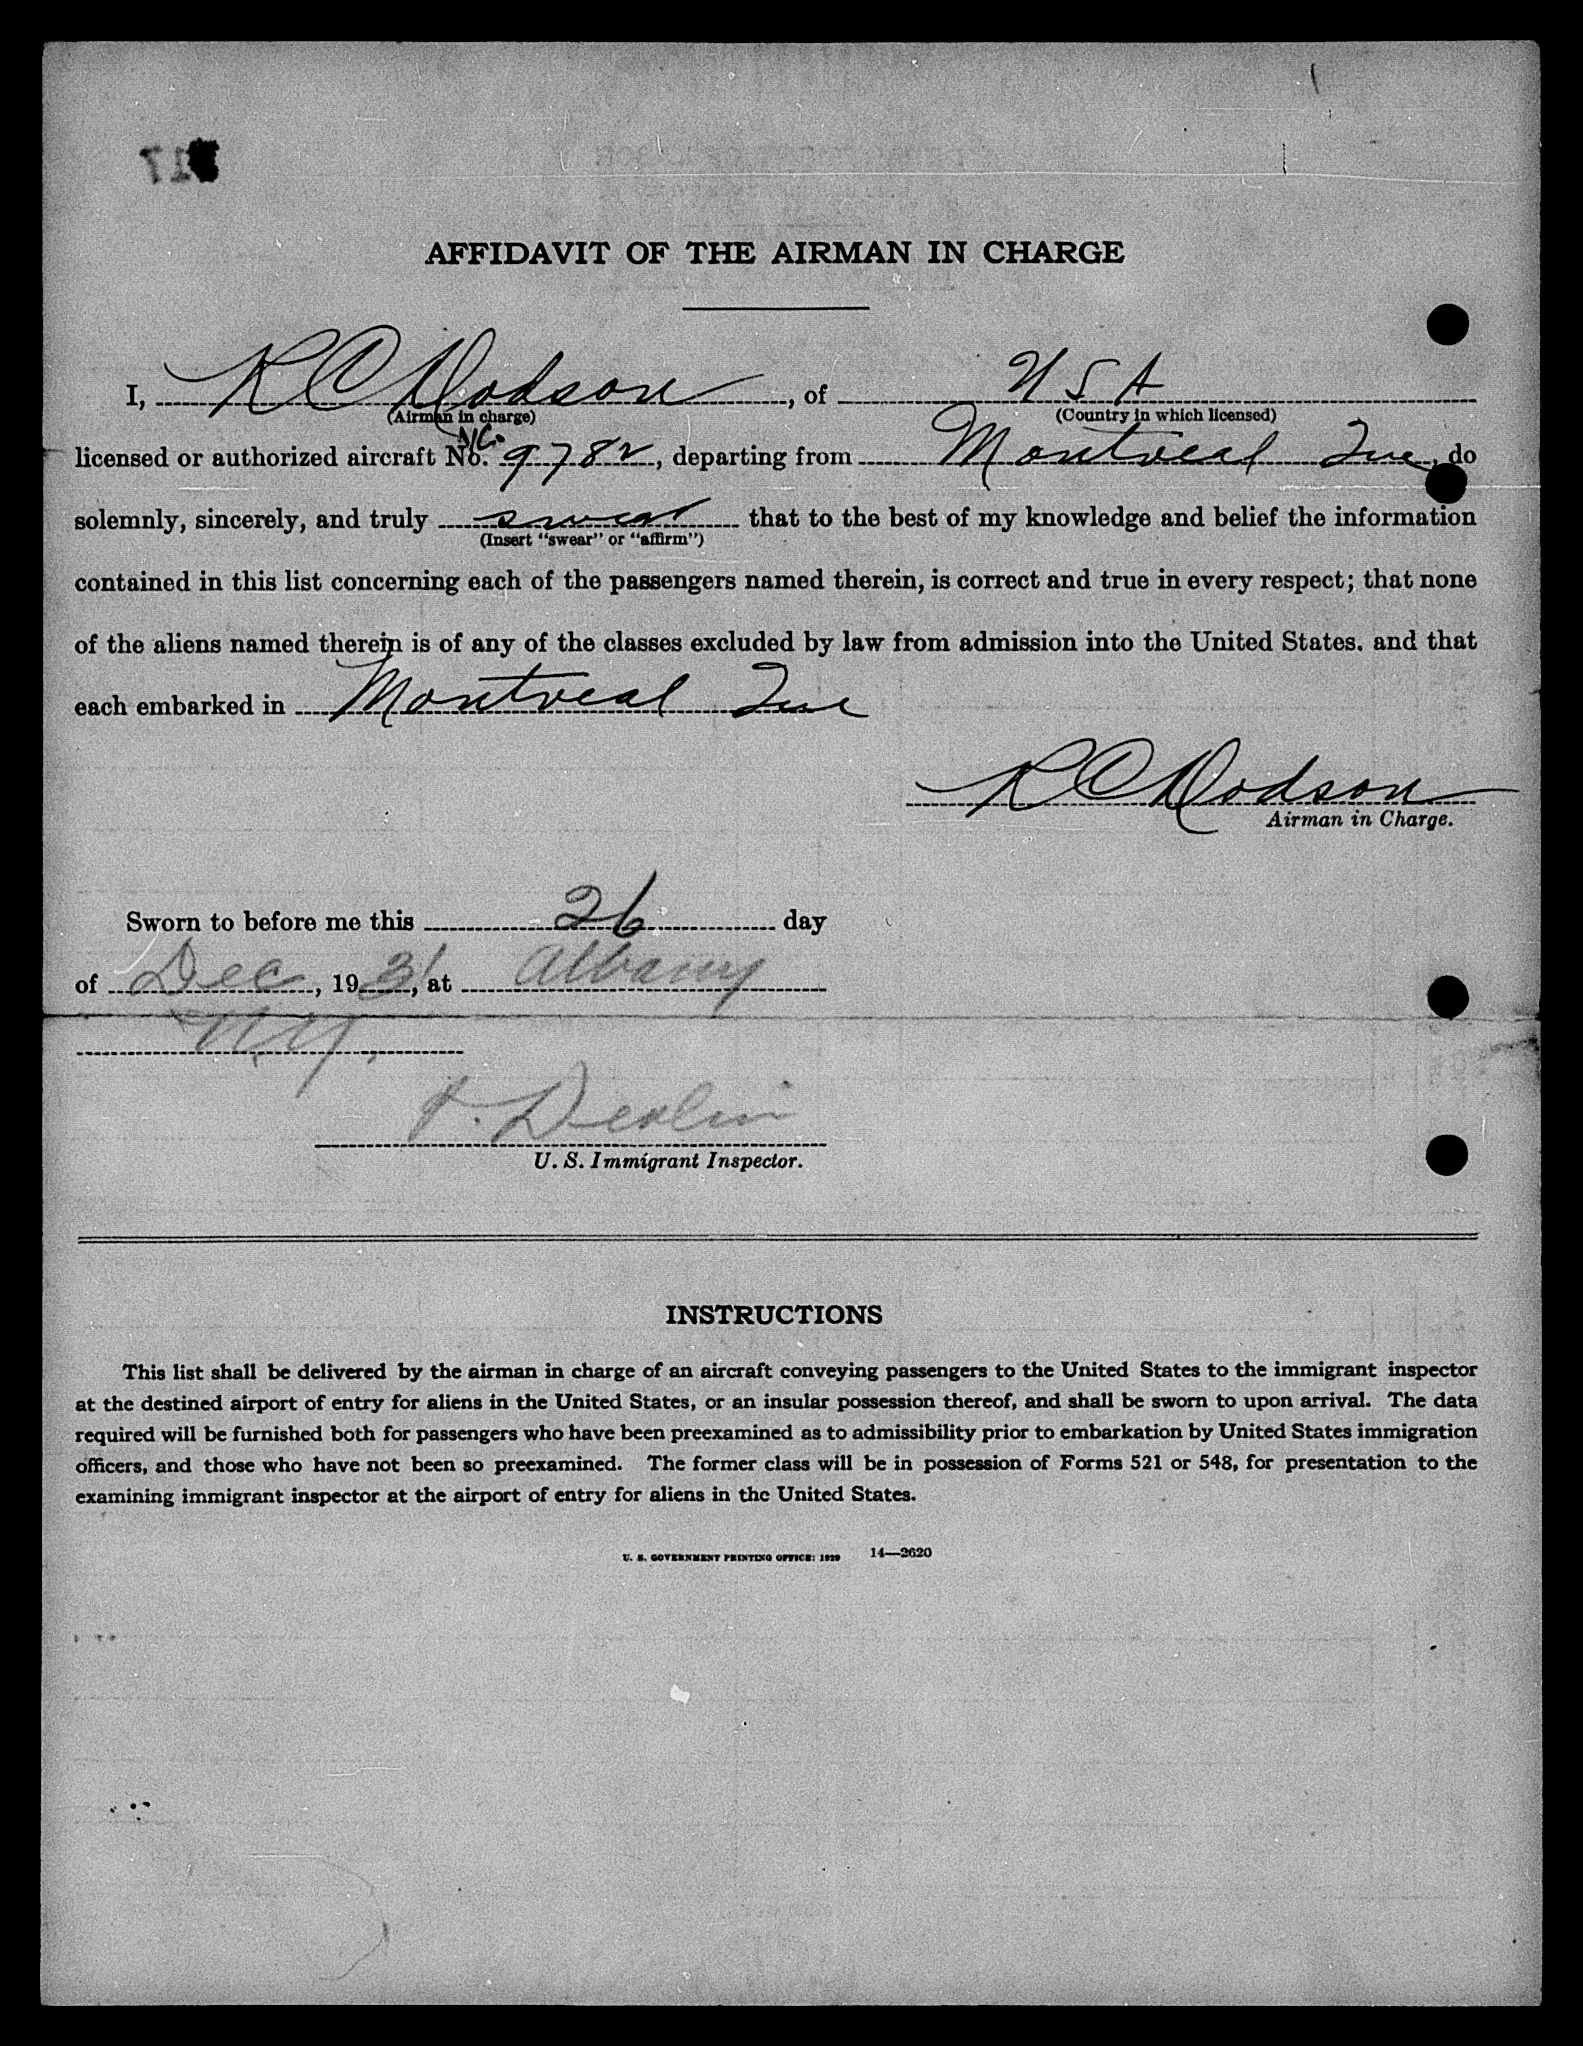 17
AFFIDAVIT OF THE AIRMAN IN CHARGE
I, R C Dodson, of U S A
(Airman in charge) (Country in which licensed)
N/C.
licensed or authorized aircraft No. 9782, departing from Montreal Que, do
solemnly, sincerely, and truly swear that to the best of my knowledge and belief the information
(Insert "swear" or "affirm")
contained in this list concerning each of the passengers named therein, is correct and true in every respect; that none
of the aliens named therein is of any of the classes excluded by law from admission into the United States, and that
each embarked in Montreal Que
R C Dodson
Airman in Charge.
Sworn to before me this 26 day
of Dec, 1931, at Albany
N.Y.
Devlin
U. S. Immigrant Inspector.
INSTRUCTIONS
This list shall be delivered by the airman in charge of an aircraft conveying passengers to the United States to the immigrant inspector
at the destined airport of entry for aliens in the United States, or an insular possession thereof, and shall be sworn to upon arrival. The data
required will be furnished both for passengers who have been preexamined as to admissibility prior to embarkation by United States immigration
officers, and those who have not been so preexamined. The former class will be in possession of Forms 521 or 548, for presentation to the
examining immigrant inspector at the airport of entry for aliens in the United States.
U. S. GOVERNMENT PRINTING OFFICE: 1929 14—2620